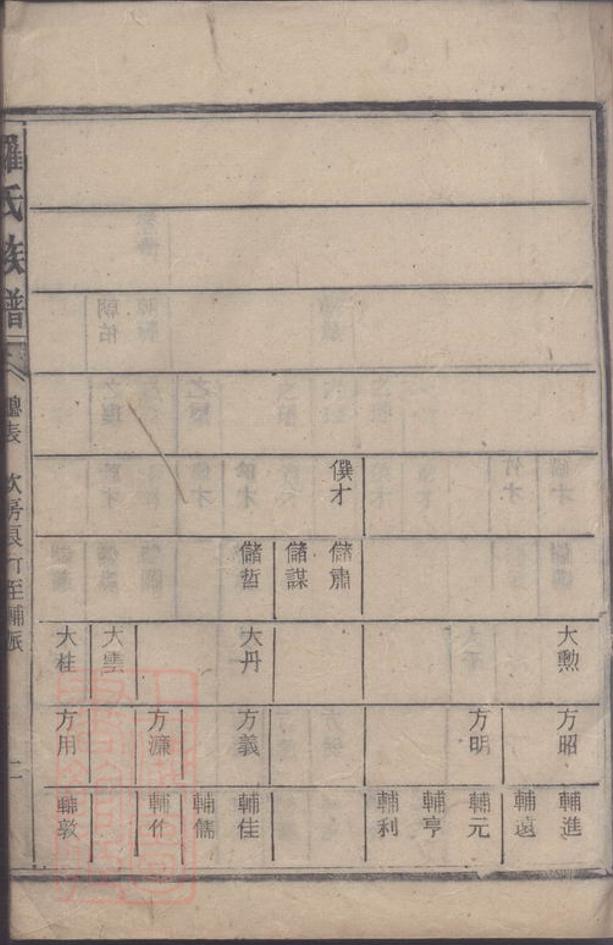 僎才
儲肅
儲謀
儲哲
大勳
大丹
大雲
大桂
方昭
方明
方義
方濂
方用
輔進
輔遠
輔元
輔亨
輔利
輔佳
輔儒
輔作
輔敦
羅氏族譜
總表
次房良訂至輔派
二